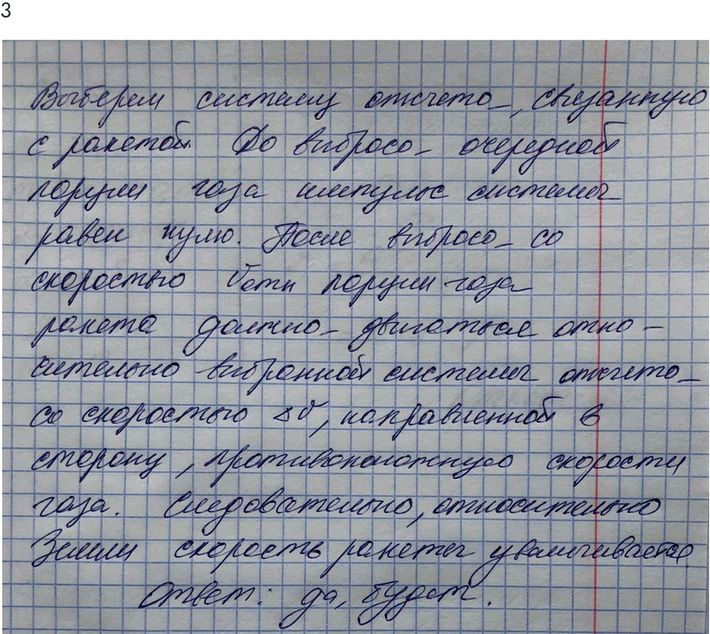 3
Выберем систему отсчета, связанную
с ракетой. До выброса очередной
порции газа импульс системы
равен нулю. После выброса со
скоростью Vотн порции газа
ракета должна двигаться отно-
сительно выбранной системы отсчета
со скоростью ΔV, направленной в
сторону, противоположную скорости
газа. Следовательно, относительно
Земли скорость ракеты увеличивается
Ответ: да, будет.